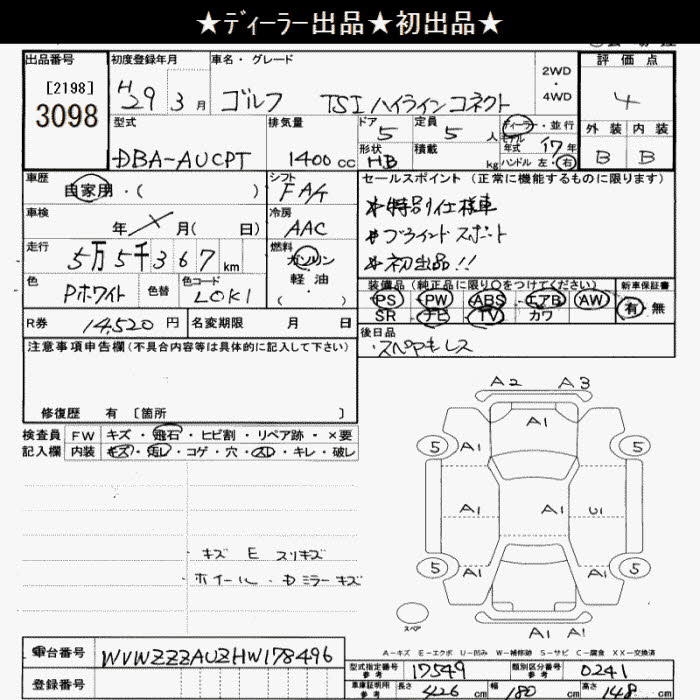 ★ディーラー出品★初出品★
出品番号
[2198]
3098
初度登録年月
H29 3月
車名・グレード
ゴルフ TSIハイラインコネクト
2WD
・
4WD
評価点
4
型式
DBA-AUCPT
排気量
1400cc
ドア
5
定員
5人
ディーラー・並行
モデル年式 17年
形状
HB
積載
kg
ハンドル 左・右
外装 内装
B B
車歴
自家用・( )
シフト
FA/T
セールスポイント (正常に機能するものに限ります)
*特別仕様車
*ブラインドスポット
*初出品!!
車検
年 月( 日)
冷房
AAC
走行
5万5千367km
燃料
ガソリン
・
軽油
( )
色
Pホワイト
色替
色コード
LOK1
装備品(純正品に限り○をつけてください)
新車保証書
PS・PW・ABS・エアB・AW
SR・ナビ・TV・カワ
有・無
R券
14,520円
名変期限 月 日
後日品
・スペアキーレス
注意事項申告欄(不具合内容等は具体的に記入して下さい)
修復歴 有 〔箇所 〕
検査員記入欄
FW キズ・飛石・ヒビ割・リペア跡・×要
内装 キズ・汚レ・コゲ・穴・スレ・キレ・破レ
・キズ E スリキズ
・ホイール・Dミラーキズ
A2 A3
A1
5 A1 A1 5
A1 A1 U1
5 A1 A1 5
スペア
A1 A1
A-キズ E-エクボ U-凹み W-補修跡 S-サビ C-腐食 XX-交換済
車台番号
WVWZZZAUZHW178496
登録番号
型式指定番号
参考
17549
類別区分番号
参考
0241
車庫証明用
参考
長さ 426cm 幅 180cm 高さ 148cm